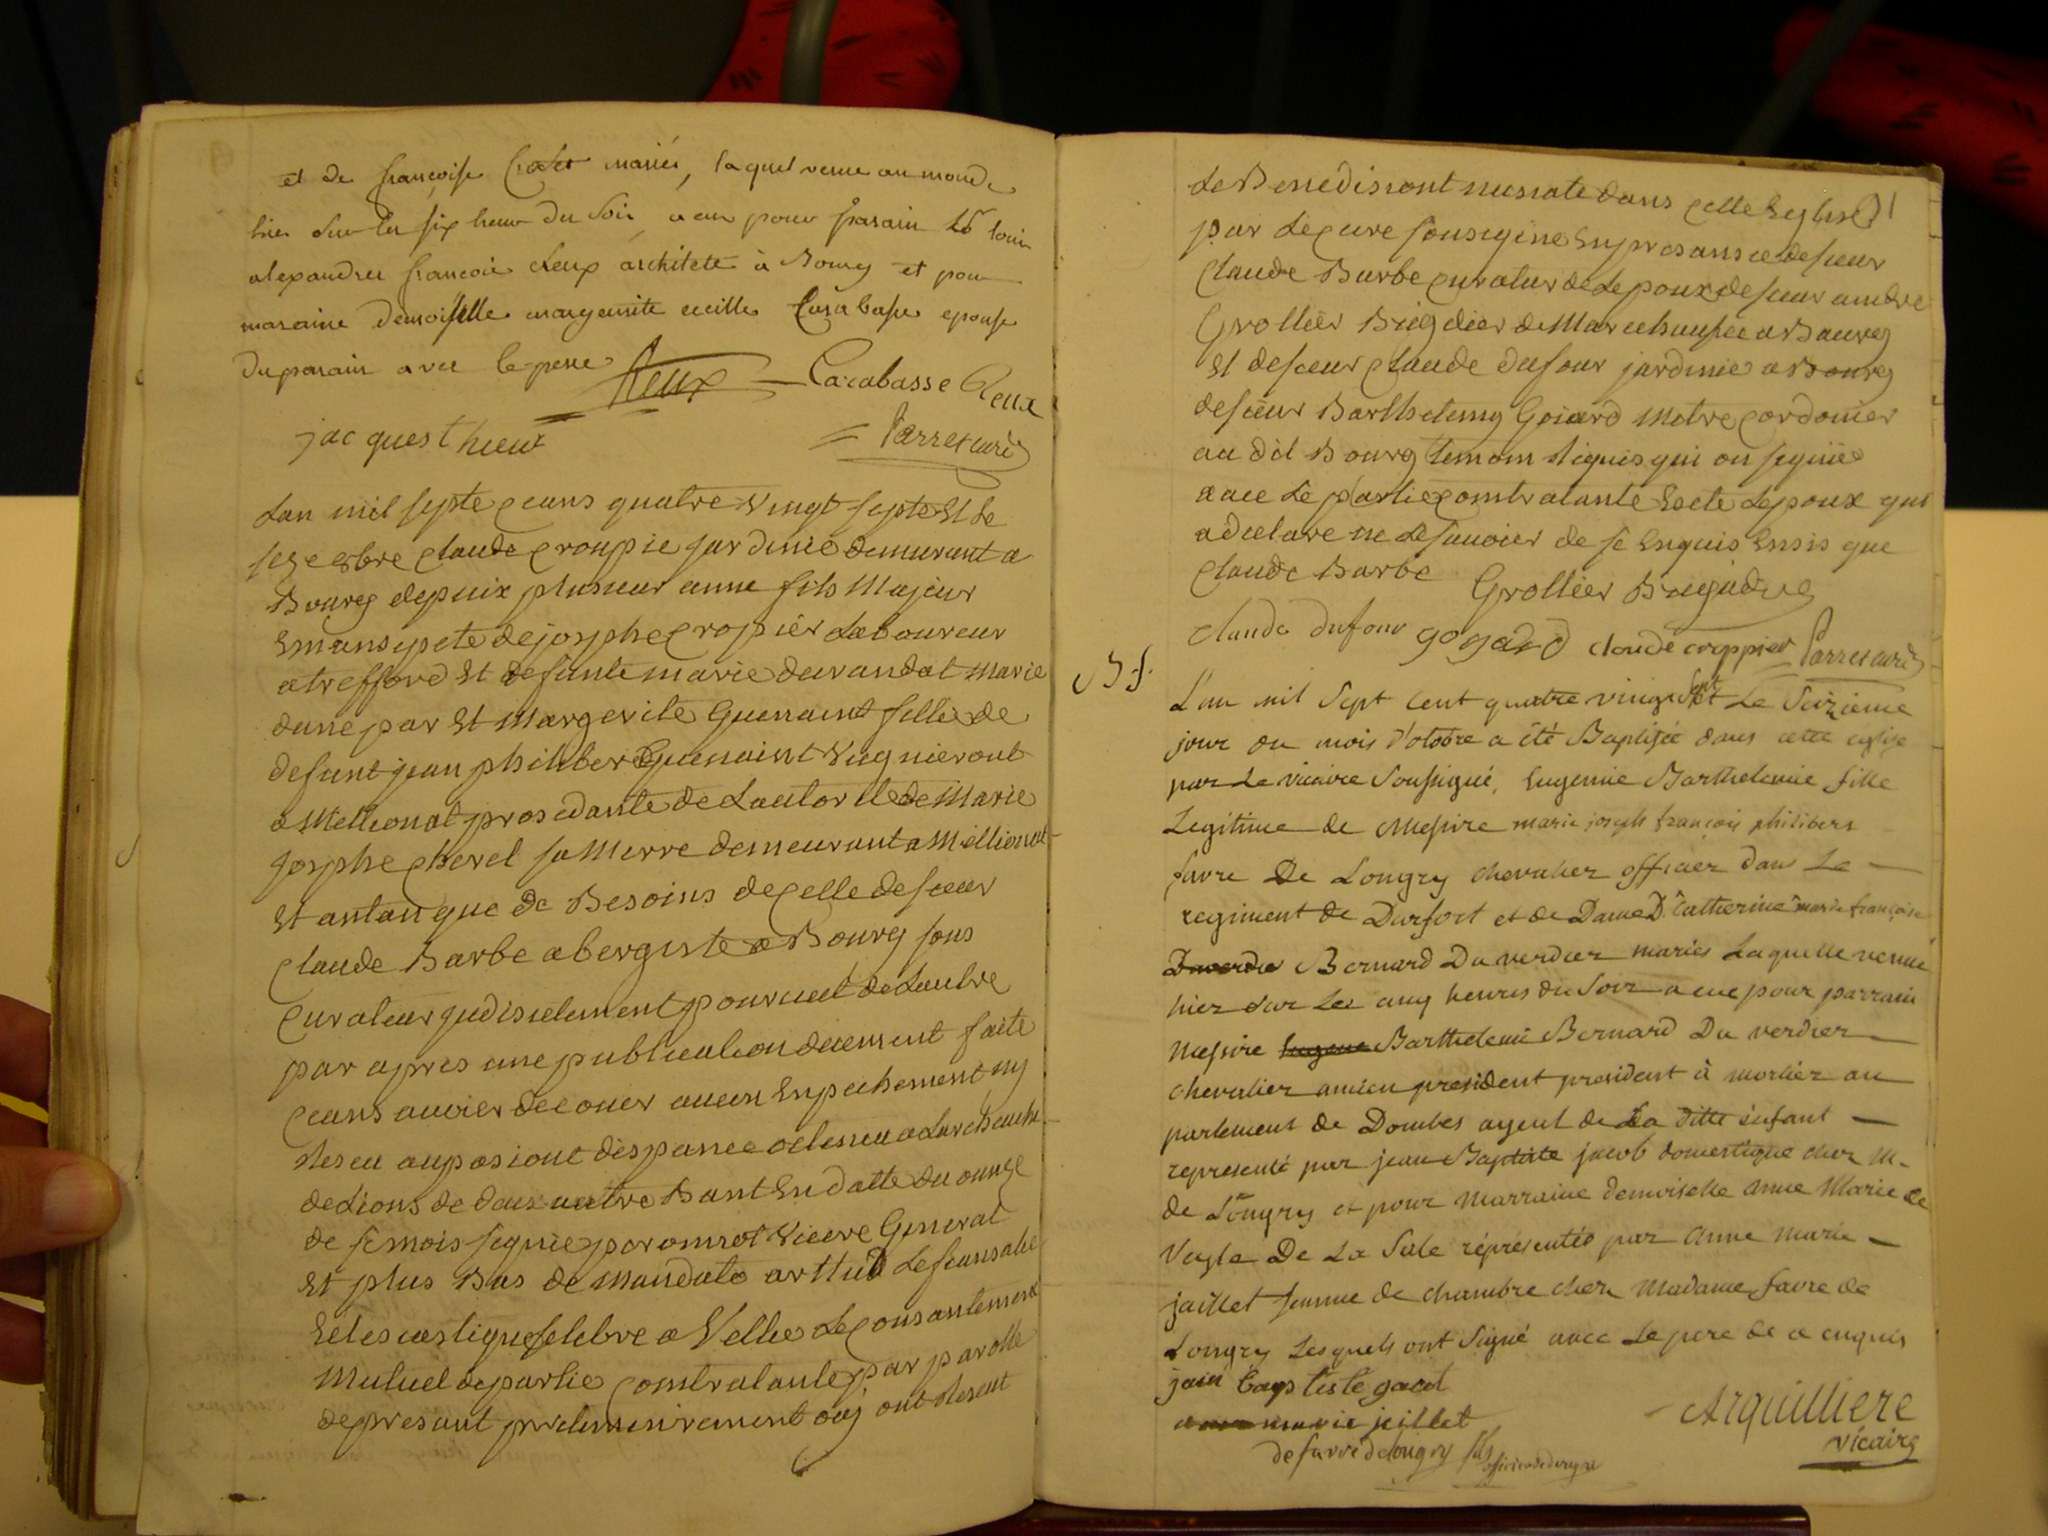 et de françoise mariés, laquel venue au monde
hier sur les six heur du soir, a eu pour parain
alexandres françois Cleux architete à Bourg et pour
maraine demoiselle margueritte cecille Carabasse epouse
du parain avec le pere Cleux Carabasse Cleux
jacquest hieux Parret curé
Lan mil septe ceans quatre vingt septe et le
seze 8bre claude croupie jardinié demurant a
Bourg depuix plusieur anne fils Majeur
emansipete de josphe cropier Laboureur
a treffford et defunte marie durandat marie
dune par et Margerite Guenaint fille de
defunt jean philiber Guenaint Vignieront
a Mellionat prosedante de Lautorite de Marie
Josphe Chevel sa Merre demeurant a Mellionat
Et antan que de Besoins de celle de sieur
Claude Barbe abergiste a Bourg sons
curateur judisielement pourvuet de Lautre
par apres une publication deuement faite
ceans avoier decouer aucun Enpechement ny
reseu auposiont dispance octenu a Larcheveche
de Lions de deux autre Bant En datte du ounze
de se mois signie par Vicere General
Et plus Bas de mandato arthud
Eclesiastique selebre a Velle Le consantement
Mutuel de partie contratante par parolle
de presant prelimineirement ouj ont reseut
Le Benedissiont nusiate dans celle Eglise 91
par Le cure sousigine En presansce de sieur
Claude Barbe curatur de Lepoux de sieur andre
Grollier Brigdier de Marechausée a Bourg
Et de sieur claude dufour jardinie a Bourg
de sieur Barthelemy Goiard Metre cordonier
au dit Bourg temoin riquis qui on signie
avec Le partie contratante Excte Lepoux qui
a declare ne Le savoier de se Enquis Ensis que
Claude Barbe Grollier Brigadie
claude dufour gogard claude croppier Parret curé
L'an mil sept cent quatre vingt sept Le Seizieme
jour du mois d'otobre a été Baptisée dans cette eglise
par Le vicaire Soussigné, Eugenie Barthelemie fille
Legitime de Messire marie joseph françois philibert
favre De Longry chevalier officier dans Le
regiment de Durfort et de Dame D. Catherine marie françoise
Duverdie Bernard Du verdier mariés Laquelle venue
hier sur Les cinq heures du Soir a eue pour parrain
Messire Eugene Barthelemi Bernard Du verdier
chevalier ancien president president à mortier au
parlement de Dombes ayeul de La ditte enfant
representé par jean Baptiste jacob domestique chez M.
de Longry et pour Marraine demoiselle Anne Marie de
Veyle De La Sale répréséntée par Anne Marie
jaillet femme de chambre chez Madame favre de
Longry Lesquels ont signé avec Le pere de ce enquis
jain baptiste gacol
anne marie jeillet Arquilliere
de favre de longry fils vicaire